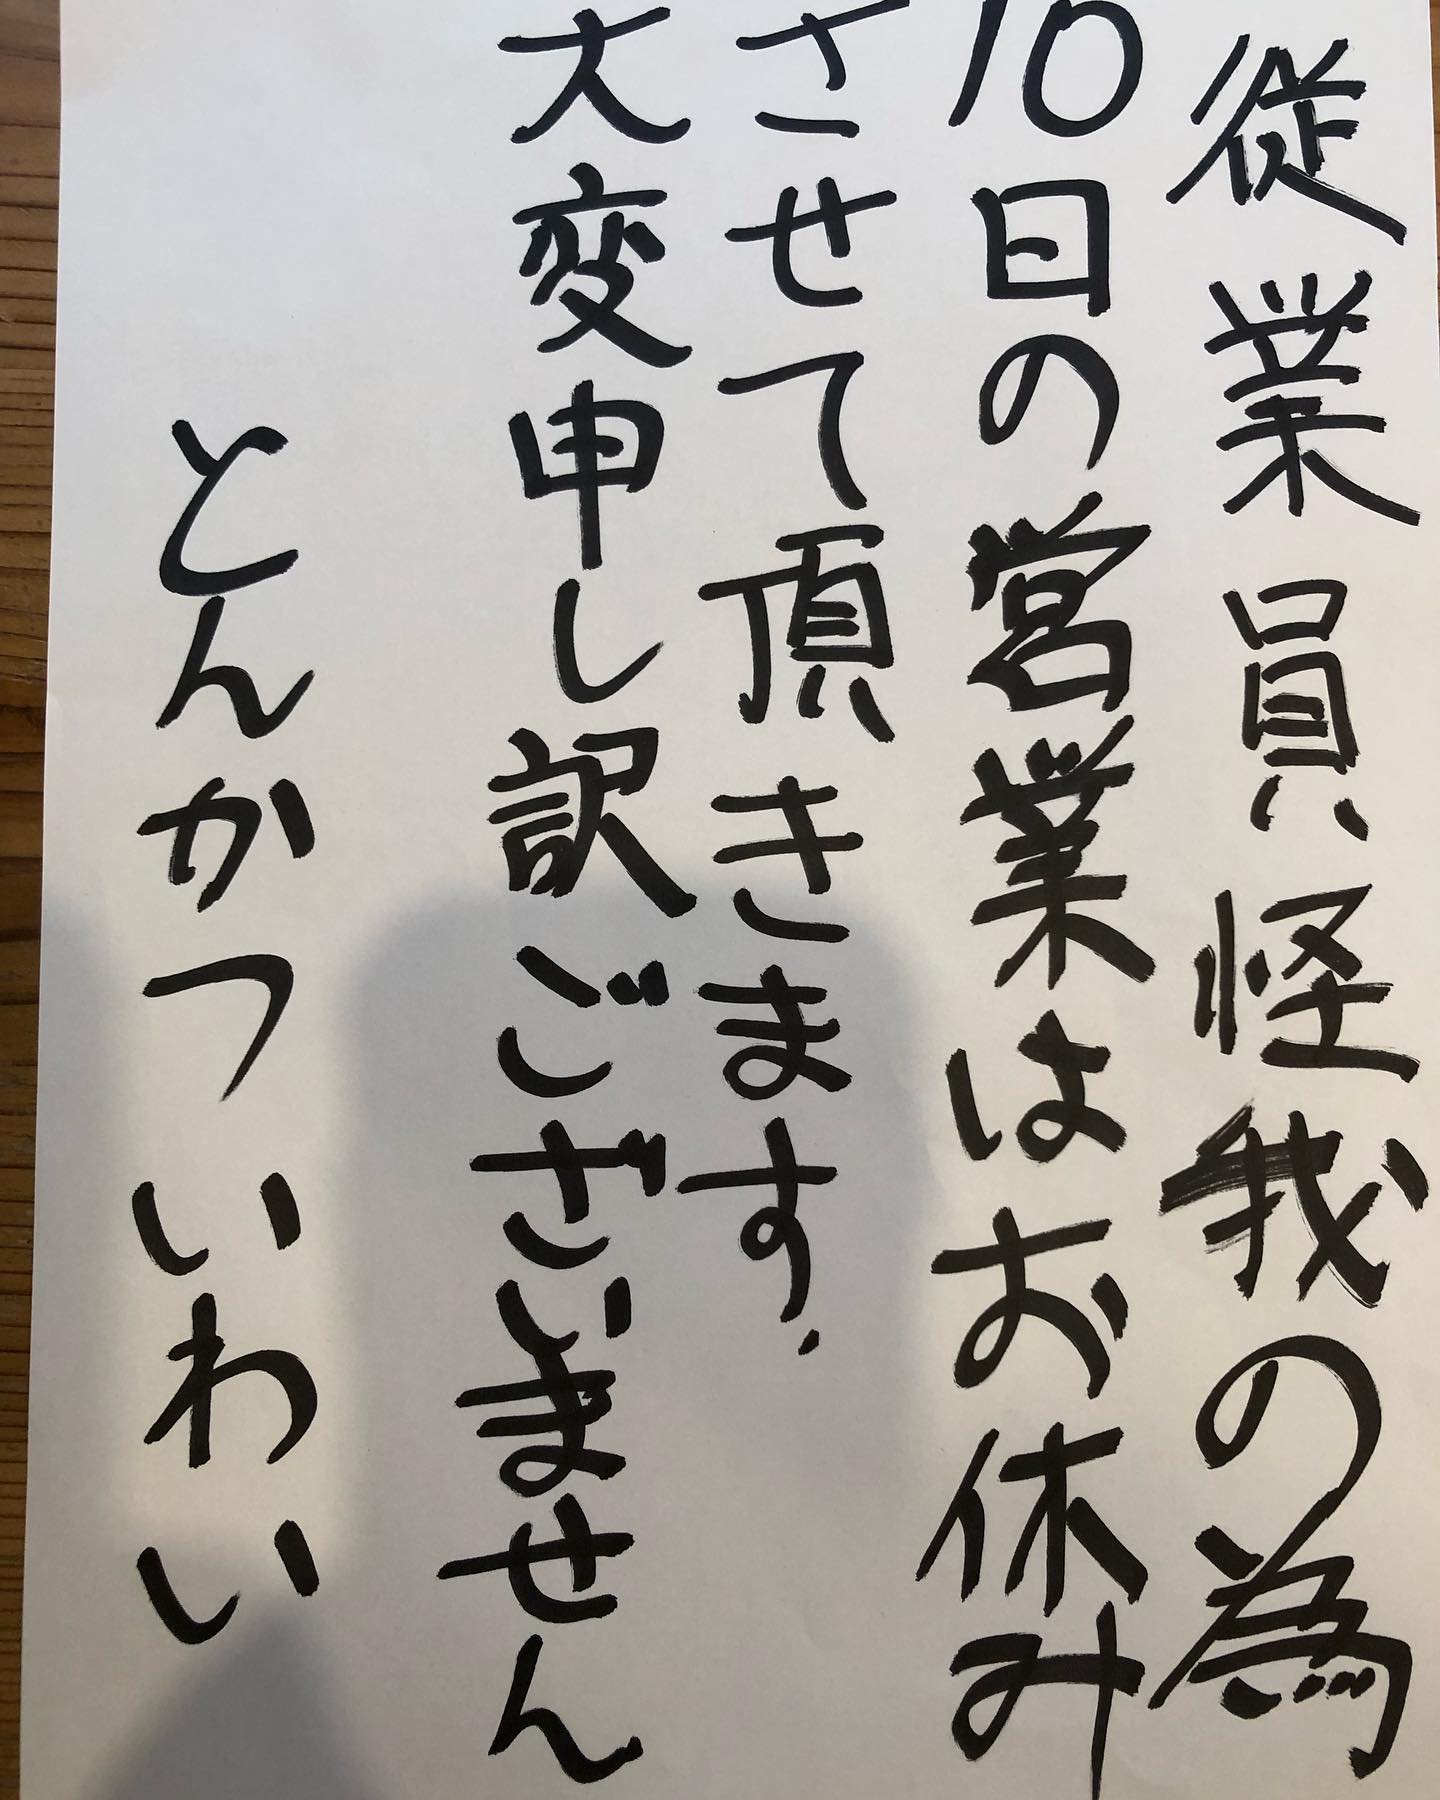 従業員怪我の為
10日の営業はお休み
させて頂きます.
大変申し訳ございません
とんかつ いわい